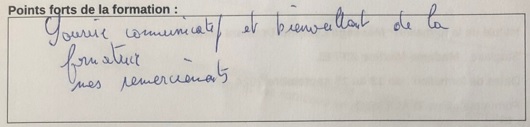 Points forts de la formation :
Sourire communicatif et bienveillant de la
formatrice
mes remerciements